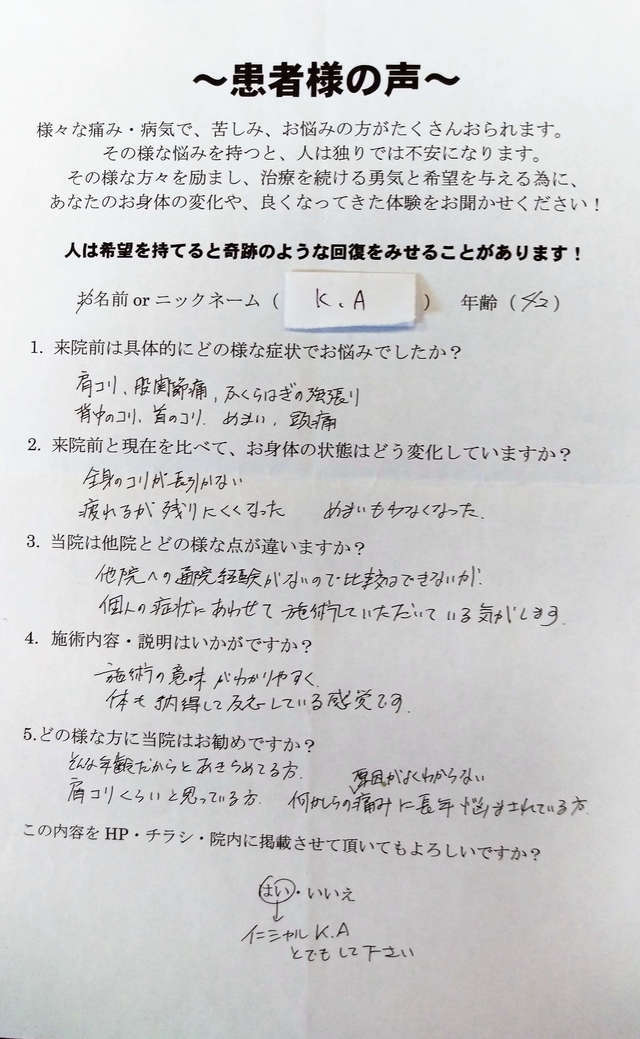 ～患者様の声～
様々な痛み・病気で、苦しみ、お悩みの方がたくさんおられます。
その様な悩みを持つと、人は独りでは不安になります。
その様な方々を励まし、治療を続ける勇気と希望を与える為に、
あなたのお身体の変化や、良くなってきた体験をお聞かせください！
人は希望を持てると奇跡のような回復をみせることがあります！
お名前 or ニックネーム（ K.A ） 年齢（42）
1. 来院前は具体的にどの様な症状でお悩みでしたか？
肩コリ、股関節痛、ふくらはぎの強張り
背中のコリ、首のコリ、めまい、頭痛
2. 来院前と現在を比べて、お身体の状態はどう変化していますか？
全身のコリが長引かない
疲れるが残りにくくなった めまいも少なくなった。
3. 当院は他院とどの様な点が違いますか？
他院への通院経験がないので比較はできないが、
個人の症状にあわせて施術していただいている気がします。
4. 施術内容・説明はいかがですか？
施術の意味がわかりやすく、
体も納得して反応している感覚です。
5.どの様な方に当院はお勧めですか？
そんな年齢だからとあきらめてる方、
原因がよくわからない
肩コリくらいと思っている方、何かしらの痛みに長年悩まされている方、
この内容を HP・チラシ・院内に掲載させて頂いてもよろしいですか？
はい・いいえ
イニシャル K.A
とでもして下さい